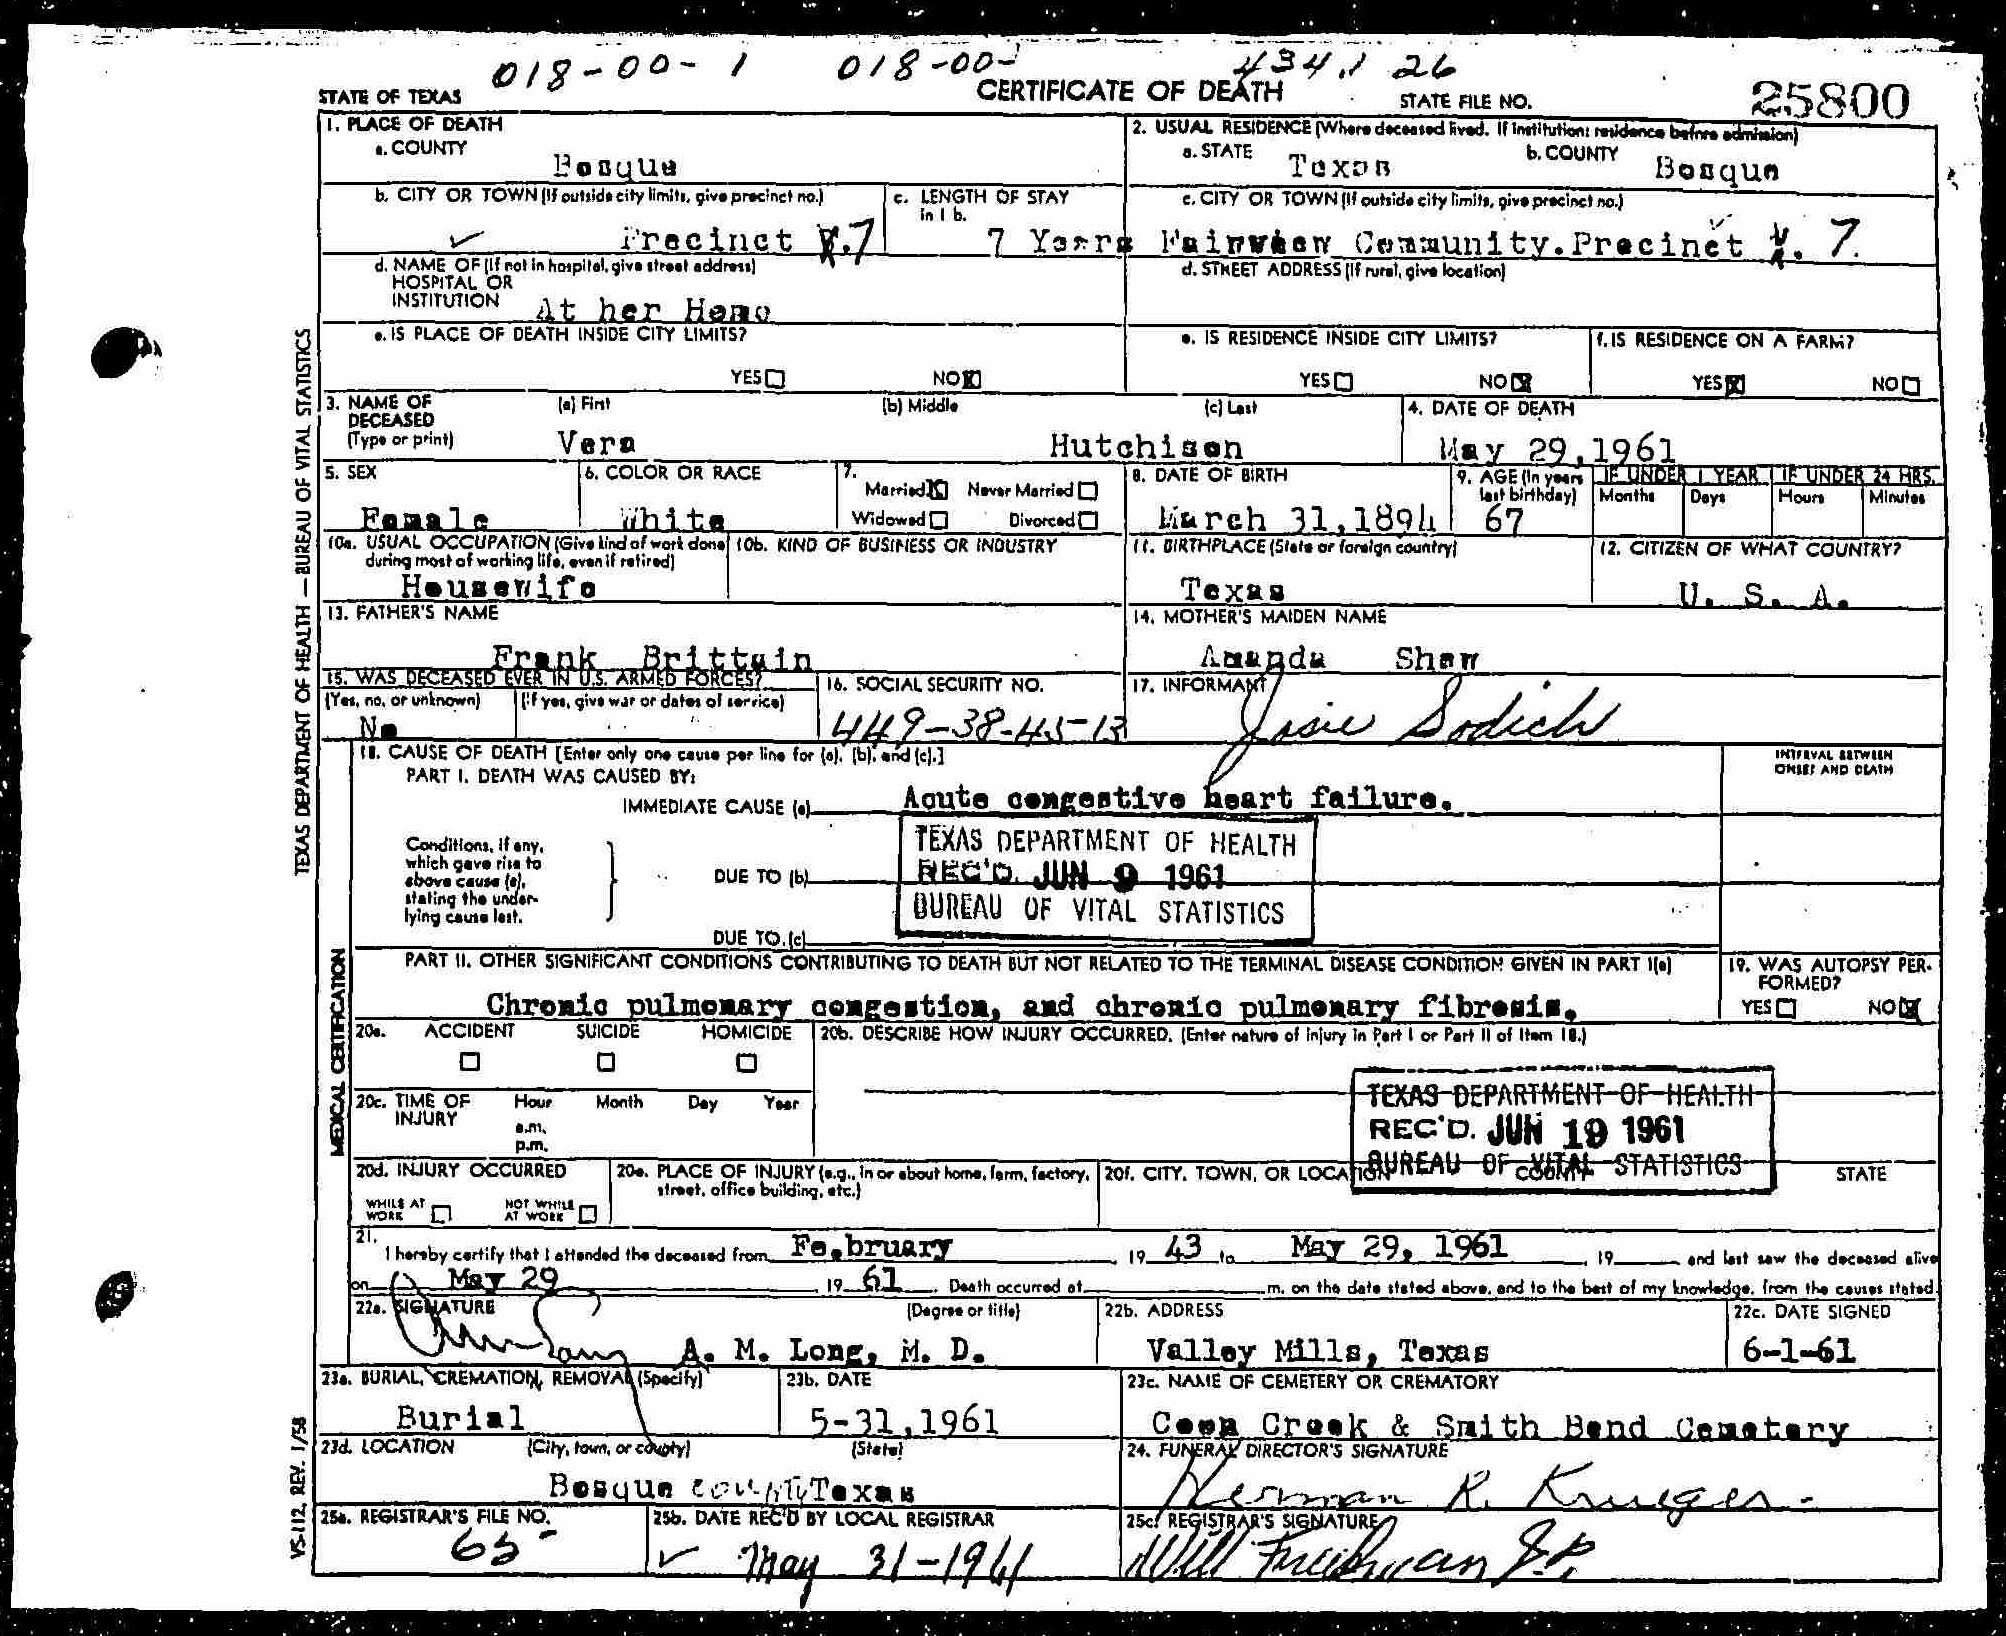 018-00-1 018-00-1 434.1 26
STATE OF TEXAS CERTIFICATE OF DEATH STATE FILE NO. 25800
1. PLACE OF DEATH
a. COUNTY
Bosque
2. USUAL RESIDENCE (Where deceased lived. If institution: residence before admission)
a. STATE Texas b. COUNTY Bosque
b. CITY OR TOWN (If outside city limits, give precinct no.)
Precinct 7
c. LENGTH OF STAY in 1 b.
7 Years
c. CITY OR TOWN (If outside city limits, give precinct no.)
Fairview Community. Precinct 7.
d. NAME OF (If not in hospital, give street address)
HOSPITAL OR
INSTITUTION At her Home
d. STREET ADDRESS (If rural, give location)
e. IS PLACE OF DEATH INSIDE CITY LIMITS?
YES NO X
e. IS RESIDENCE INSIDE CITY LIMITS?
YES NO X
f. IS RESIDENCE ON A FARM?
YES X NO
3. NAME OF DECEASED (Type or print)
(a) First (b) Middle (c) Last
Vera Hutchison
4. DATE OF DEATH
May 29, 1961
5. SEX
Female
6. COLOR OR RACE
White
7.
Married X Never Married
Widowed Divorced
8. DATE OF BIRTH
March 31, 1894
9. AGE (In years last birthday)
67
IF UNDER 1 YEAR IF UNDER 24 HRS.
Months Days Hours Minutes
10a. USUAL OCCUPATION (Give kind of work done during most of working life, even if retired)
Housewife
10b. KIND OF BUSINESS OR INDUSTRY
11. BIRTHPLACE (State or foreign country)
Texas
12. CITIZEN OF WHAT COUNTRY?
U. S. A.
13. FATHER'S NAME
Frank Brittain
14. MOTHER'S MAIDEN NAME
Amanda Shaw
15. WAS DECEASED EVER IN U.S. ARMED FORCES?
(Yes, no, or unknown) (If yes, give war or dates of service)
No
16. SOCIAL SECURITY NO.
449-38-45-13
17. INFORMANT
Josie
18. CAUSE OF DEATH [Enter only one cause per line for (a), (b), and (c).]
INTERVAL BETWEEN ONSET AND DEATH
PART I. DEATH WAS CAUSED BY:
IMMEDIATE CAUSE (a) Acute congestive heart failure.
Conditions, if any, which gave rise to above cause (a), stating the underlying cause last.
DUE TO (b)
DUE TO (c)
TEXAS DEPARTMENT OF HEALTH
REC'D. JUN 9 1961
BUREAU OF VITAL STATISTICS
PART II. OTHER SIGNIFICANT CONDITIONS CONTRIBUTING TO DEATH BUT NOT RELATED TO THE TERMINAL DISEASE CONDITION GIVEN IN PART I(a)
Chronic pulmonary congestion, and chronic pulmonary fibrosis.
19. WAS AUTOPSY PERFORMED?
YES NO X
20a. ACCIDENT SUICIDE HOMICIDE
20b. DESCRIBE HOW INJURY OCCURRED. (Enter nature of injury in Part I or Part II of Item 18.)
20c. TIME OF INJURY Hour Month Day Year
a.m.
p.m.
TEXAS DEPARTMENT OF HEALTH
REC'D. JUN 19 1961
BUREAU OF VITAL STATISTICS
20d. INJURY OCCURRED
WHILE AT WORK NOT WHILE AT WORK
20e. PLACE OF INJURY (e.g., in or about home, farm, factory, street, office building, etc.)
20f. CITY, TOWN, OR LOCATION COUNTY STATE
21. I hereby certify that I attended the deceased from February 19 43 to May 29, 1961 19 and last saw the deceased alive
on May 29 19 61. Death occurred at m. on the date stated above, and to the best of my knowledge, from the causes stated.
22a. SIGNATURE (Degree or title)
A. M. Long, M. D.
22b. ADDRESS
Valley Mills, Texas
22c. DATE SIGNED
6-1-61
23a. BURIAL, CREMATION, REMOVAL (Specify)
Burial
23b. DATE
5-31, 1961
23c. NAME OF CEMETERY OR CREMATORY
Coon Creek & Smith Bend Cemetery
23d. LOCATION (City, town, or county) (State)
Bosque county Texas
24. FUNERAL DIRECTOR'S SIGNATURE
Herman R. Krueger
25a. REGISTRAR'S FILE NO.
65
25b. DATE REC'D BY LOCAL REGISTRAR
May 31-1961
25c. REGISTRAR'S SIGNATURE
Will J.P.
TEXAS DEPARTMENT OF HEALTH — BUREAU OF VITAL STATISTICS
MEDICAL CERTIFICATION
VS-112, REV. 1/58